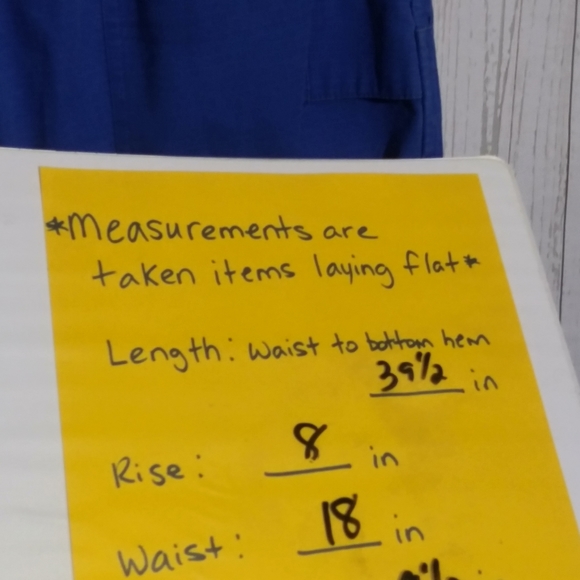 *Measurements are
taken items laying flat*
Length: Waist to bottom hem
39½ in
Rise: 8 in
Waist: 18 in